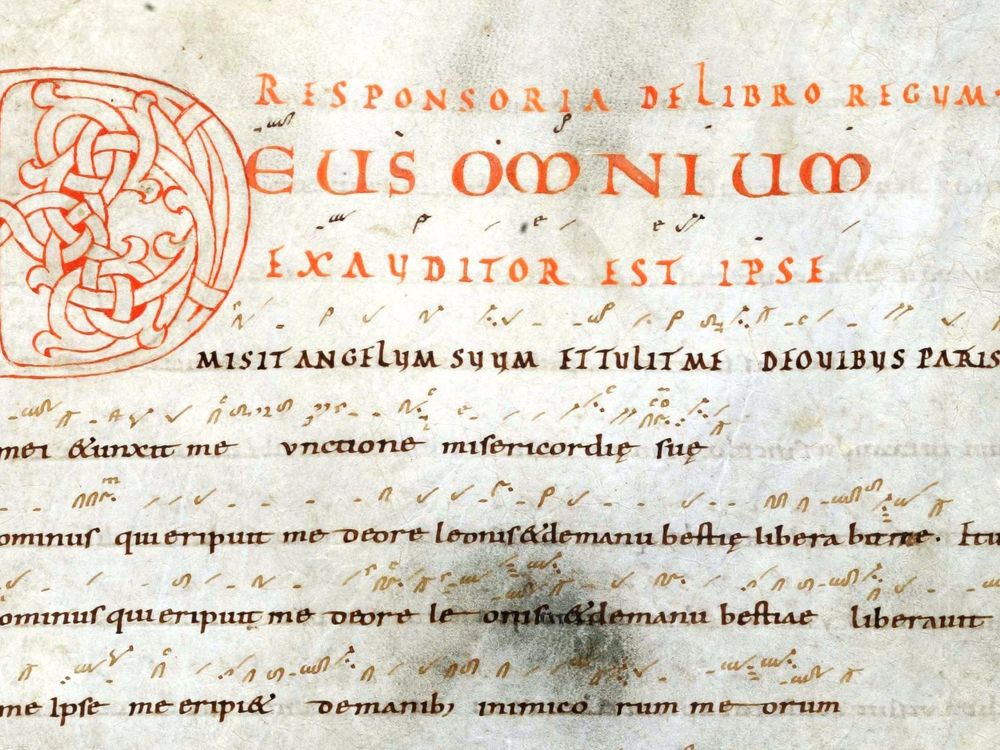 RESPONSORIA DE LIBRO REGUM.
DEUS OMNIUM
EXAUDITOR EST IPSE
MISIT ANGELUM SUUM ET TULIT ME DE OVIBUS PATRIS
mei & unxit me unctione misericordię suę
ominus qui eripuit me de ore leonis & de manu bestię libera
ominus qui eripuit me de ore le onis & de manu bestiae liberauit
me Ipse me eripi& de manib; inimico rum me orum